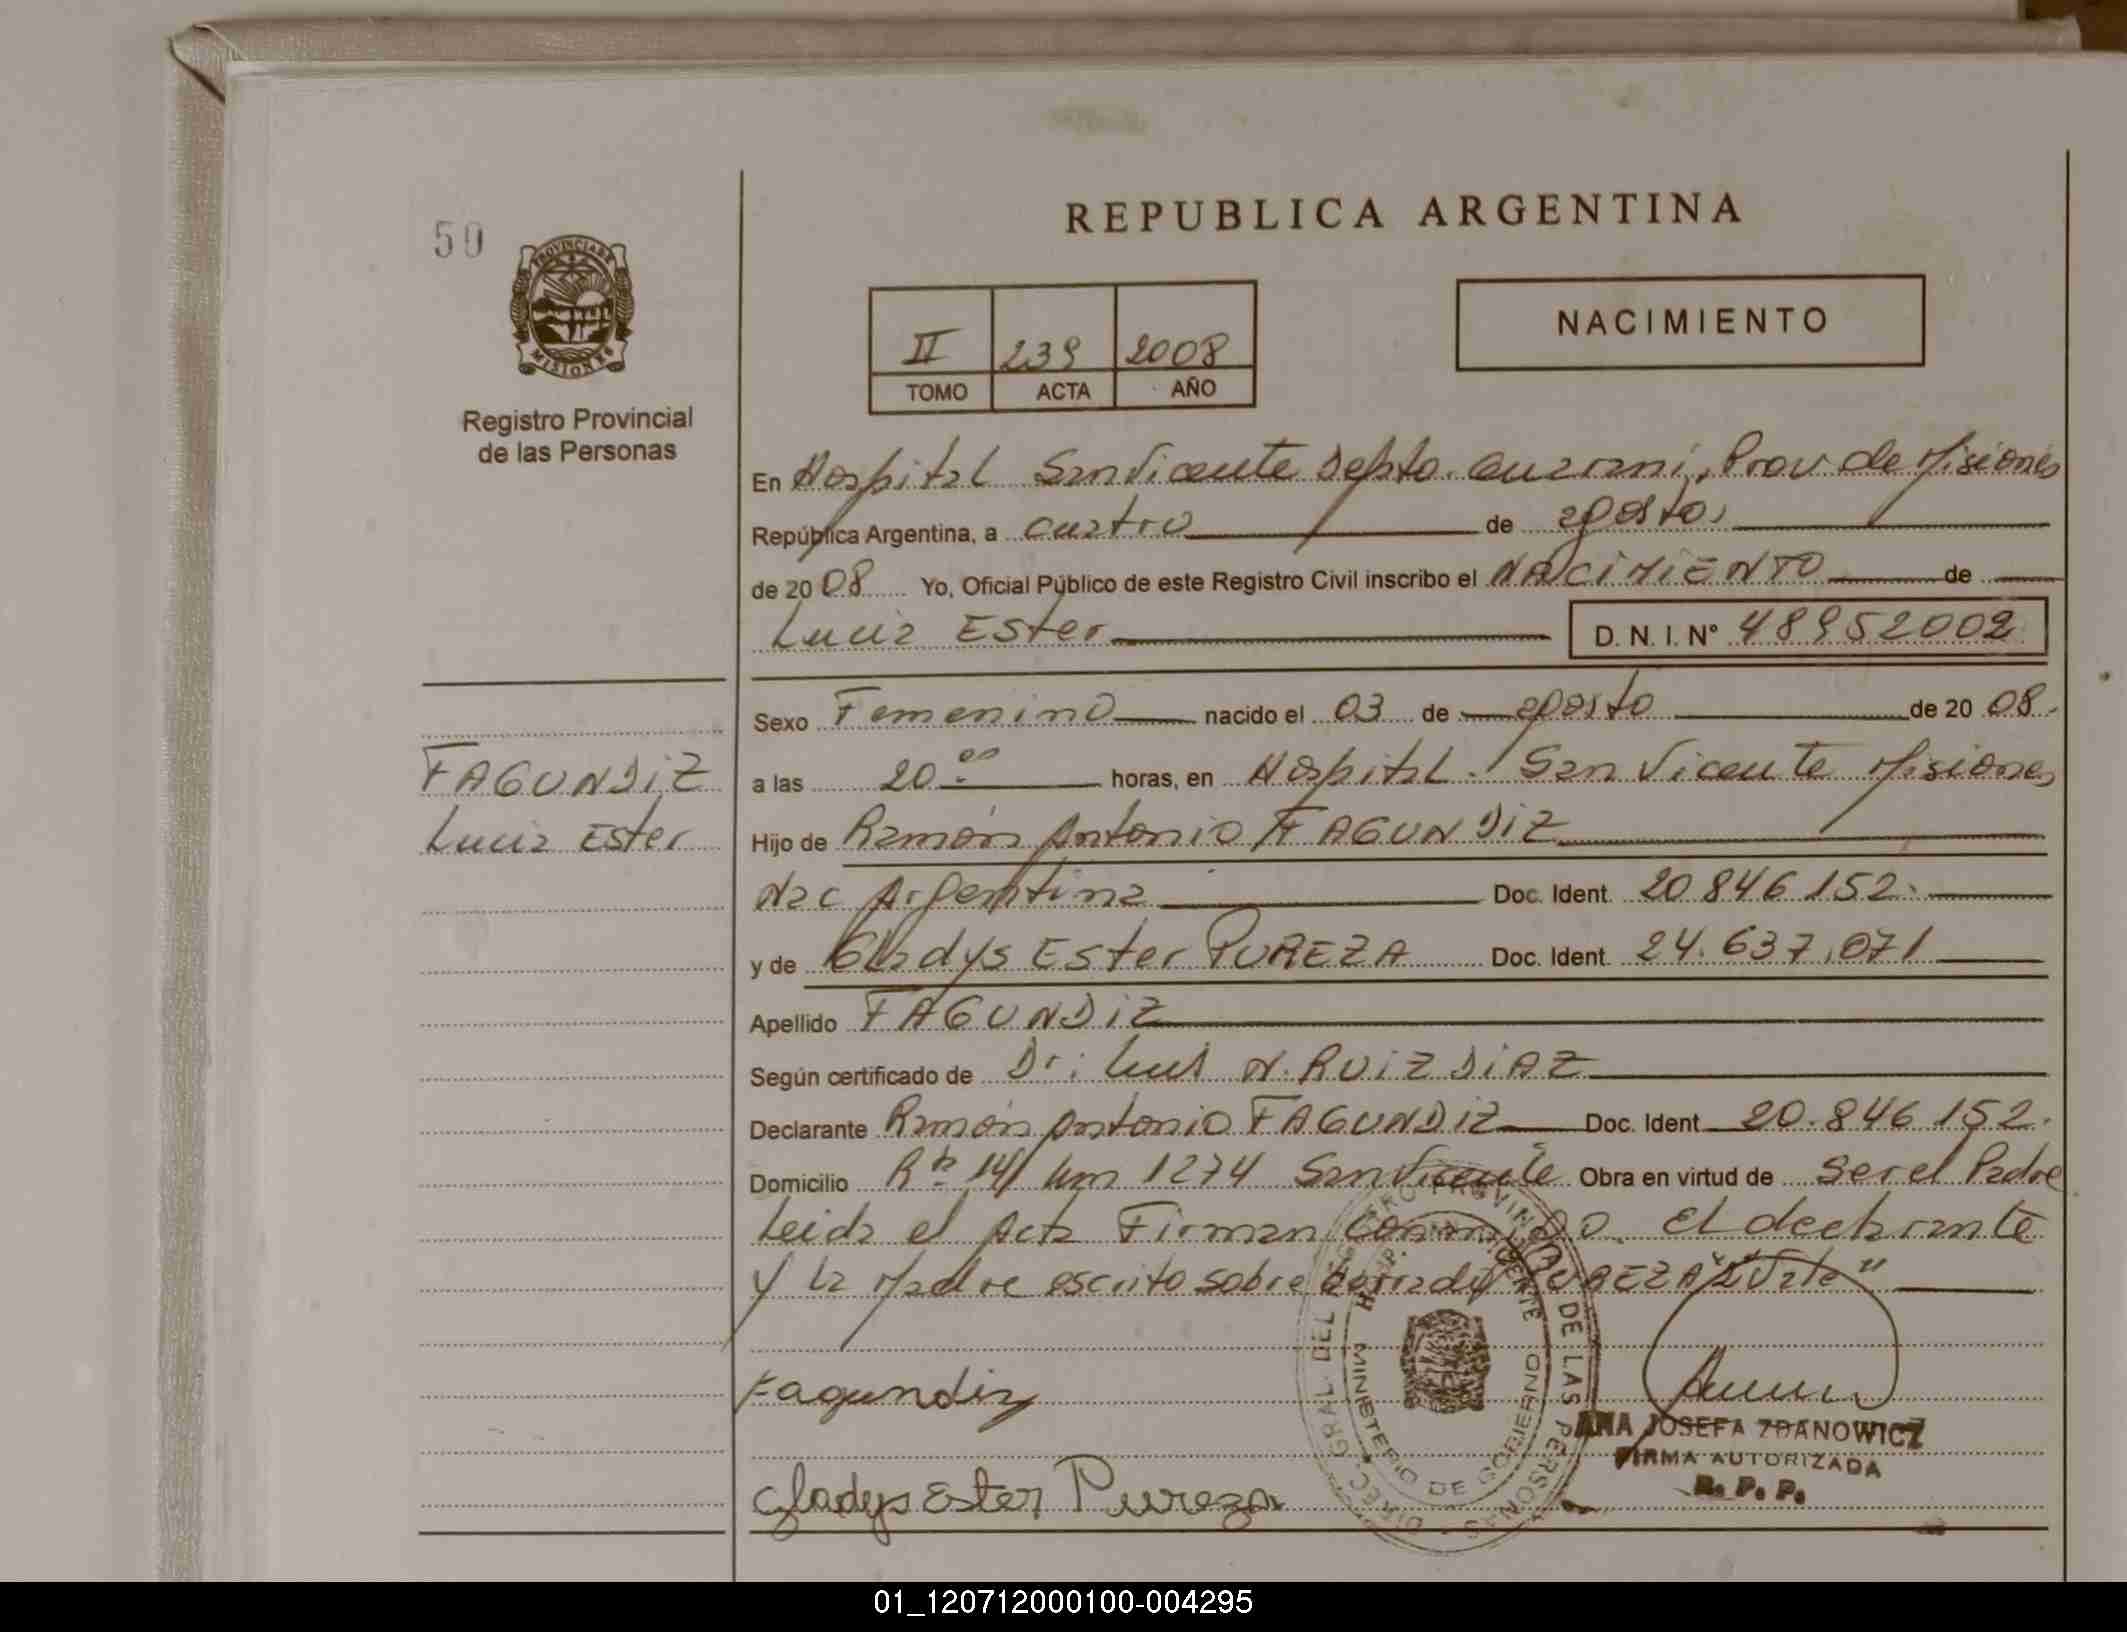 REPUBLICA ARGENTINA
50
PROVINCIA DE
MISIONES
Registro Provincial
de las Personas
II 239 2008
TOMO ACTA AÑO
NACIMIENTO
En Hospital San Vicente Depto. Guaraní, Prov de Misiones
República Argentina, a cuatro de agosto,
de 2008 Yo, Oficial Público de este Registro Civil inscribo el NACIMIENTO de
Lucia Ester D. N. I. N° 48952002
Sexo Femenino nacido el 03 de agosto de 20 08.
FAGUNDIZ
Lucia Ester
a las 20 00 horas, en Hospital San Vicente Misiones
Hijo de Ramón Antonio FAGUNDIZ
Nac Argentina Doc. Ident. 20 846 152.
y de Gladys Ester PUREZA Doc. Ident. 24.637.071
Apellido FAGUNDIZ
Según certificado de Dr: Luis N. RUIZ DIAZ
Declarante Ramón Antonio FAGUNDIZ Doc. Ident 20.846 152.
Domicilio Rta 14/ km 1274 San Vicente Obra en virtud de Ser el Padre
Leida el Acta Firman conmigo El declarante
y la Madre escrito sobre borrado PUREZA "Vale"
Fagundiz
Gladys Ester Pureza
DIREC. GRAL. DEL REGISTRO PROVINCIAL DE LAS PERSONAS
MINISTERIO DE GOBIERNO
ANA JOSEFA ZDANOWICZ
FIRMA AUTORIZADA
R. P. P.
01_120712000100-004295